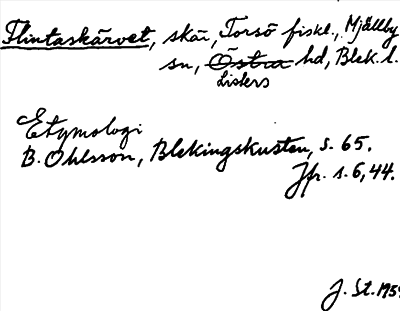 Flintaskärvet, skär, Torsö fiskl., Mjällby
sn, Östra hd, Blek. l.
Listers
Etymologi
B. Ohlsson, Blekingskusten, s. 65.
Jfr. s. 6, 44.
J. St. 195